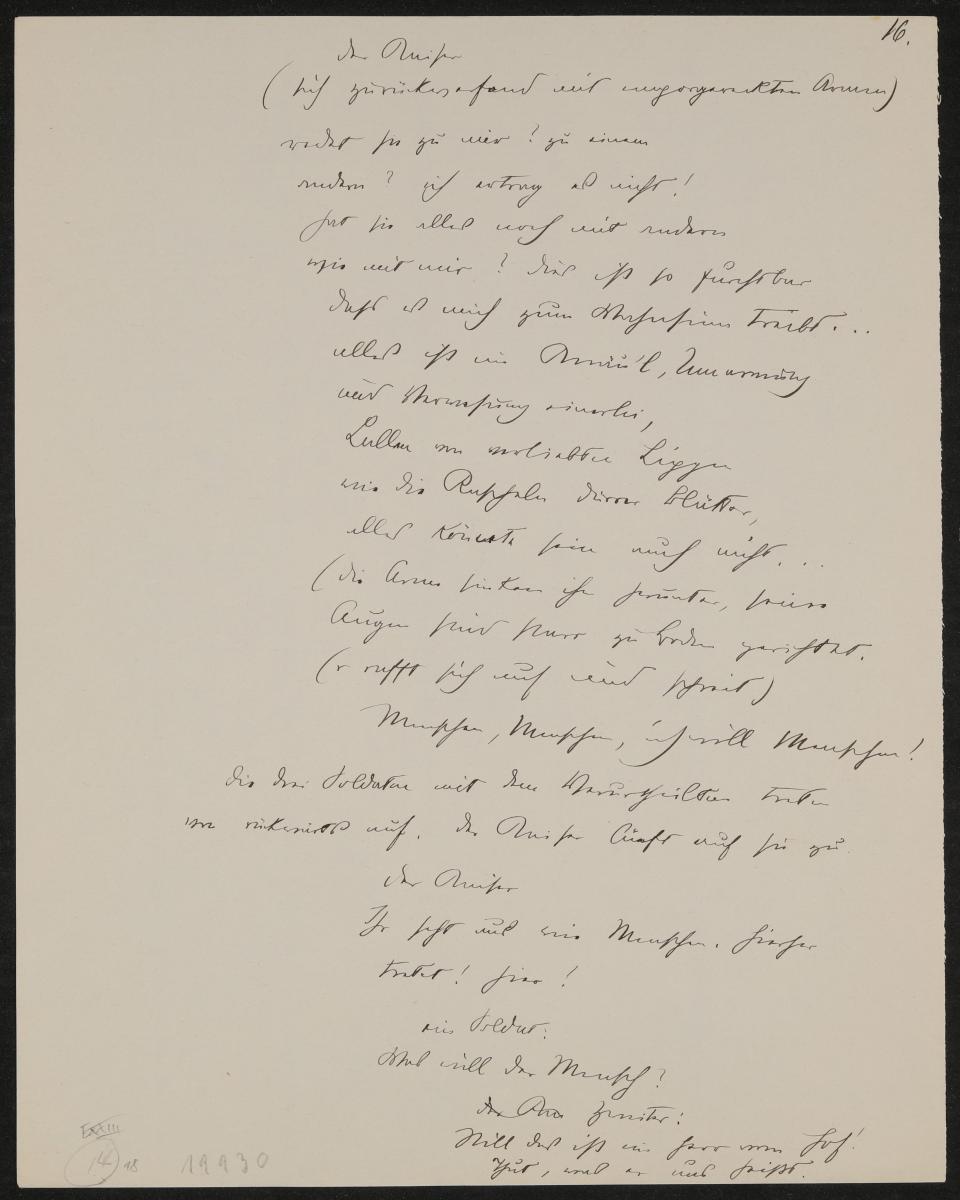 16.
der Kaiser
(sich zurückwerfend mit emporgereckten Armen)
redet sie zu mir? zu einem
andern? ich ertrag es nicht!
hat sie alles noch mit andern
wie mit mir? dies ist so furchtbar
dass es mich zum Wahnsinn treibt...
alles ist ein Knäu'l, Umarmung
und Verwesung einerlei,
Lallen von verliebten Lippen
wie das Rascheln dürrer Blätter,
alles könnte sein auch nicht...
(die Arme sinken ihm herunter, seine
Augen sind starr zu Boden gerichtet.
(er rafft sich auf und schreit)
Menschen, Menschen, ich will Menschen!
die drei Soldaten mit dem Verurtheilten treten
von rückwärts auf. der Kaiser läuft auf sie zu.
der Kaiser
Ihr seht aus wie Menschen. hierher
tretet! hier!
ein Soldat:
Was will der Mensch?
der Zweiter:
Still das ist ein Herr vom Hof!
Thut, was er uns heisst.
14 18 19930